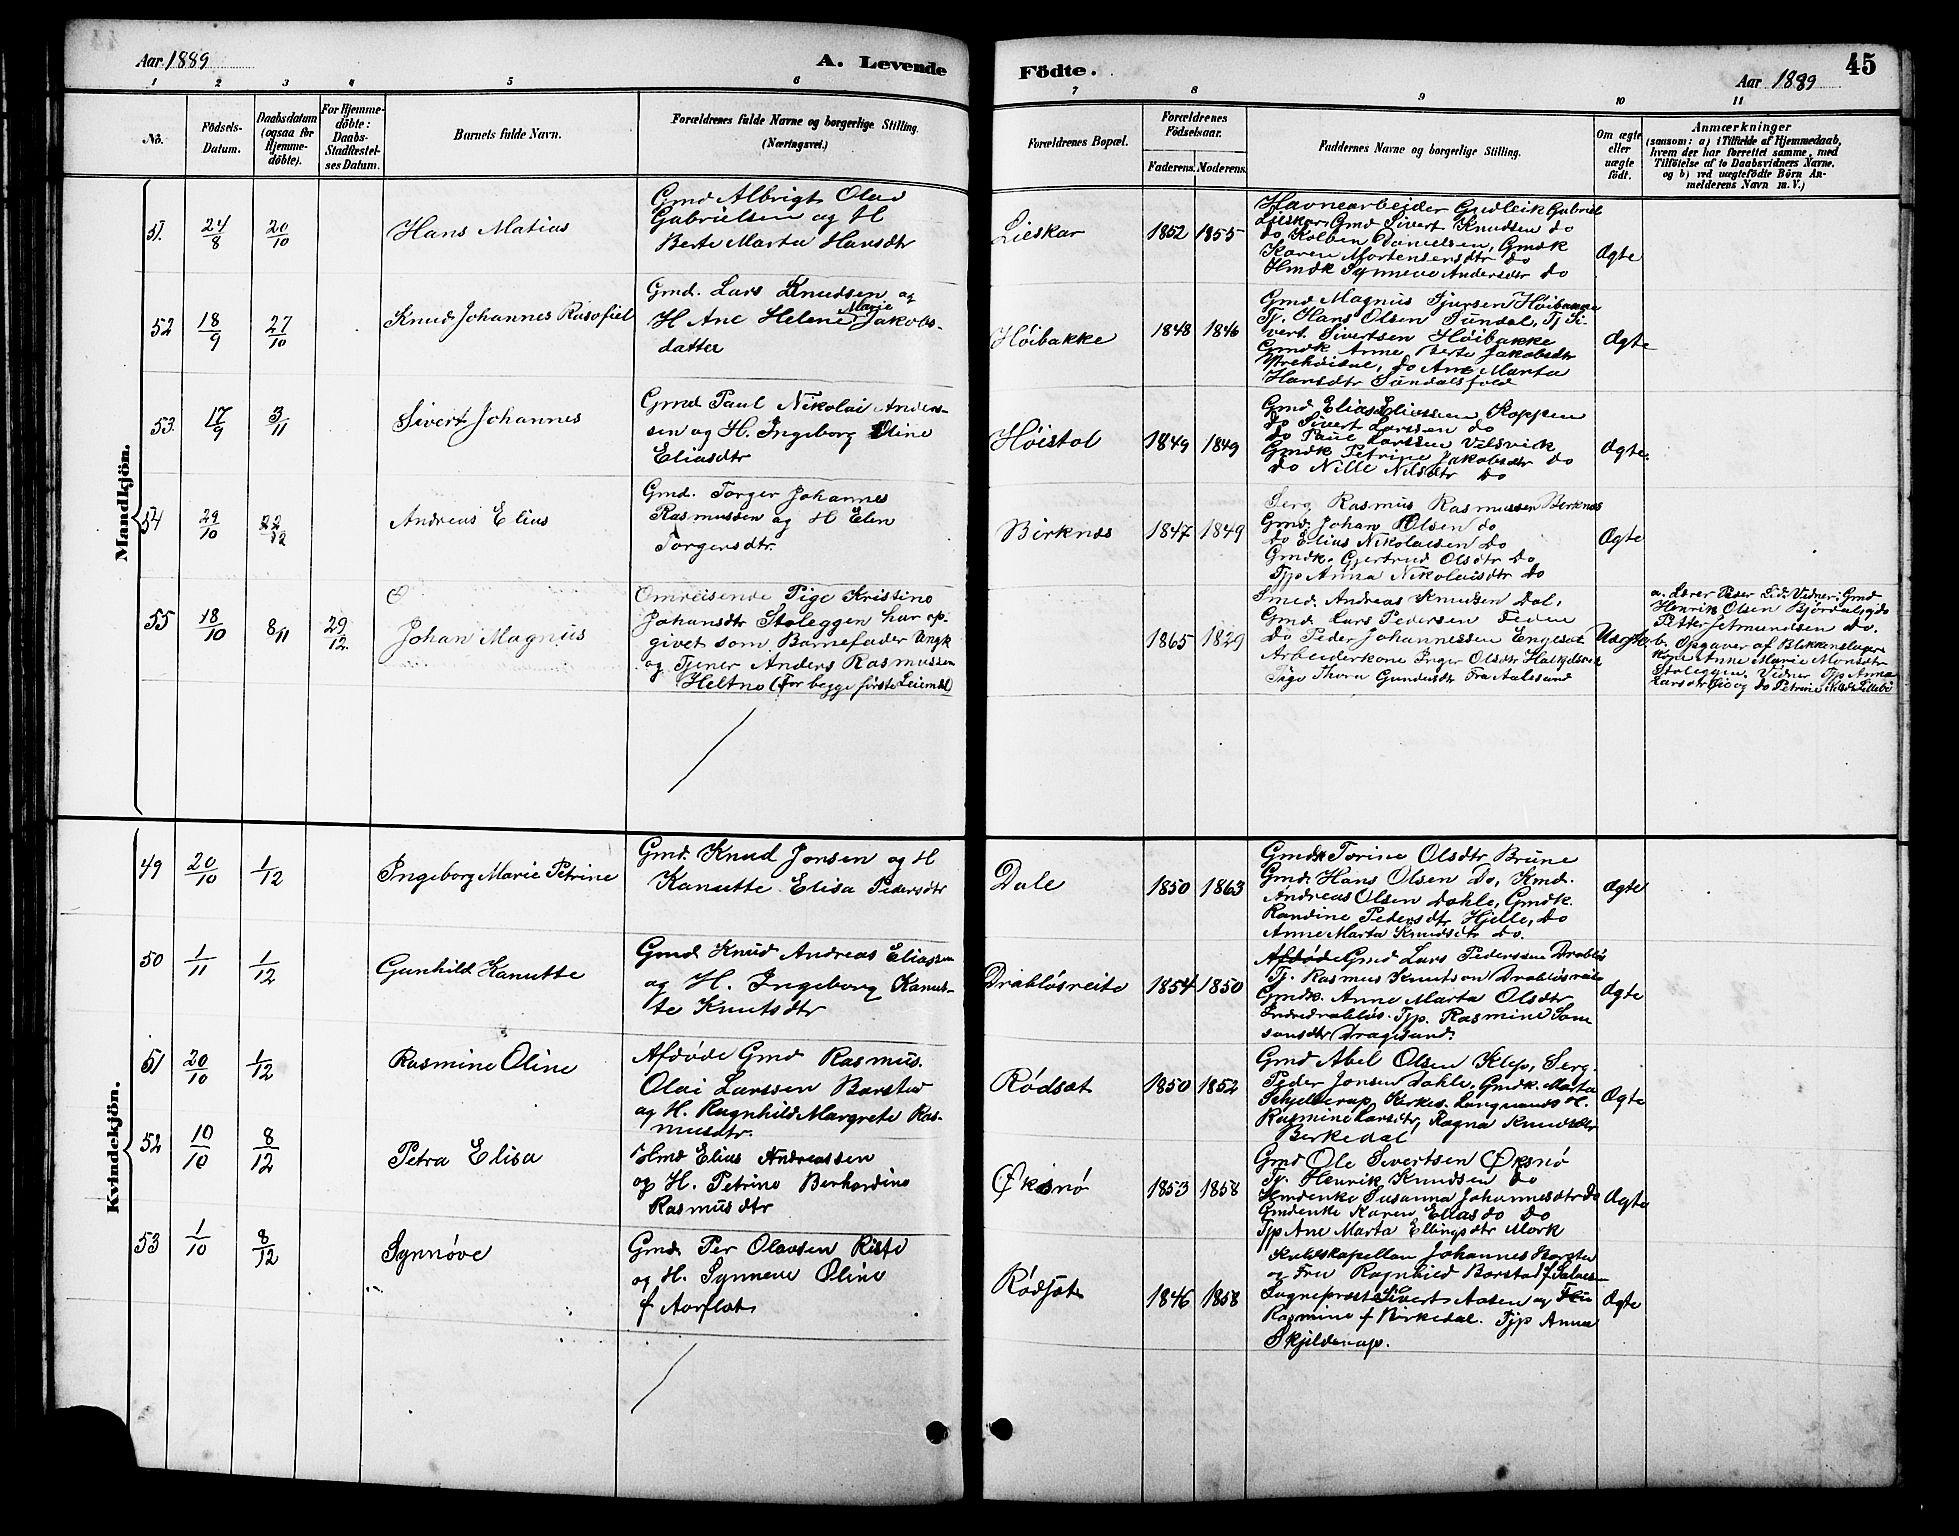 Aar 1889
A. Levende
Födte.
Aar 1889
45
1 2 3 4 5 6 7 8 9 10 11
No.
Födsels-
Datum.
Daabsdatum
(ogsaa for
Hjemme-
döbte).
For Hjemme-
döbte:
Daabs-
Stadfæstel-
ses Datum.
Barnets fulde Navn.
Forældrenes fulde Navne og borgerlige Stilling.
(Næringsvei.)
Forældrenes Bopæl.
Forældrenes
Födselsaar.
Faderens. Moderens.
Faddernes Navne og borgerlige Stilling.
Om ægte
eller
uægte
født.
Anmærkninger
(saasom: a) i Tilfælde af Hjemmedaab,
hvem der har forrettet samme, med
Tilföielse af to Daabsvidners Navne,
og b) ved uægtefödte Börn An-
melderens Navn m. V.)
Mandkjön.
51. 24/8 20/10
Hans Matias
Gmd Albrigt Olai
Gabrielsen og H
Berte Marta Hansdtr
Lieskar
1852 1855
Havnearbejder Gudleik Gabriel
Lieskar, Gmd Sivert Knudsen do
do Kolben Danielsen, Gmdk
Karen Mortensensdtr do
Hmdk Synneve Andersdtr do
Ægte
52 18/9 27/10
Knud Johannes Rasofiel
Gmd. Lars Knudsen og
H Ane Helene Marie Jakobs-
datter
Høibakke
1848 1846
Gmd Magnus Sjursen Høibakke
Tj. Hans Olsen Sundal, Tj Si-
vert Sivertsen Høibakke
Gmdk Anne Berte Jakobsdtr
Ytrehøisæt, do Ane Marta
Hansdtr Sundalsfold
Ægte
53 17/9 3/11
Sivert Johannes
Gmd Paul Nikolai Anders-
sen og H. Ingeborg Oline
Eliasdtr
Høistol
1849 1849
Gmd Elias Eliassen Koppen
do Sivert Larssen do
do Paul Larssen Velsvik
Gmdk Petrine Jakobsdtr do
do Nille Nilsdtr do
Ægte.
54 29/10 22/12
Andreas Elias
Gmd. Torger Johannes
Rasmussen og H Elen
Torgersdtr.
Birknes
1847 1849
Serg Rasmus Rasmussen Berknes
Gmd. Johan Olsen do
do Elias Nikolaisen do
Gmdk. Gjertrud Olsdtr do
Tjp Anna Nikolaisdtr do
Ægte
55 18/10 8/11 29/12.
Johan Magnus
Omreisende Pige Kristine
Johansdtr Stoleggen har op-
givet som Barnefader Ungk
og Tjener Anders Rasmussen
Heltne (For begge første Leiermål)
1865 1829
Smed. Andreas Knudsen Dal,
Gmd Lars Pedersen
do Peder Johannessen Engeset
Arbeiderkone Inger Olsdtr
Pige Thora Gundersdtr Fra Aalesund
Uægte
a. Lærer Peder Vidner: Gmd
Henrik Olsen Bjørdal og do
Petter Asmundsen do.
b. Opgaver af Blikkenslager
kone Anne Marie Monsdtr
Stoleggen. Vidner Tjp Anna
Larsdtr og do Petrine
Kvindekjön.
49 20/10 1/12
Ingeborg Marie Petrine
Gmd. Knud Jonsen og H
Kanutte Elisa Pedersdtr
Dale
1850 1863
Gmdk Torine Olsdtr Brune
Gmd. Hans Olsen do, Kmd.
Andreas Olsen Dahle, Gmdk.
Randine Pedersdtr Hjelle, do
Anne Marta Knudsdtr do.
Ægte
50 1/11 1/12
Gunhild Kanutte
Gmd Knud Andreas Eliassen
og H. Ingeborg Kanut-
te Knutsdtr
Drabløsreite
1854 1850
Afdøde Gmd Lars Pederssen Drabløs
Tj. Rasmus Knutson Drabløsreite
Gmdk. Anne Marta Olsdtr
Indredrabløs. Tjp. Rasmine Sam
sonsdtr Dragesund.
Ægte
51 20/10 1/12
Rasmine Oline
Afdøde Gmd Rasmus
Olai Larssen Barstad
og H. Ragnhild Margrete Ras-
musdtr.
Rødsæt
1850 1852
Gmd Abel Olsen Klep, Serg.
Peder Jonsen Dahle, Gmdk. Marta
Schjelderup, Kirkes. Langnands H.
Rasmine Larsdtr, Ragna Knudsdtr
Berkedal
Ægte
52 10/10 8/12
Petra Elisa
Hmd Elias Andreassen
og H. Petrine Berhardine
Rasmusdtr
Øksnø
1853 1858
Gmd Ole Sivertsen Øksnø
Tj. Henrik Knudsen do
Hmdenke Susanna Johannesdtr do
Gmdenke Karen Eliasdo do
Tjp Ane Marta Ellingsdtr Mork
Ægte
53 1/10 8/12
Synnøve
Gmd. Per Olavsen Riste
og H. Synneve Oline
f Aarflot
Rødsæt
1846 1858
Johannes Barstad
og Fru Ragnhild Barstad f
Sogneprest Sivert Aasen og Fru
Rasmine f Birkedal. Tjp Anna
Skjelderup.
Ægte